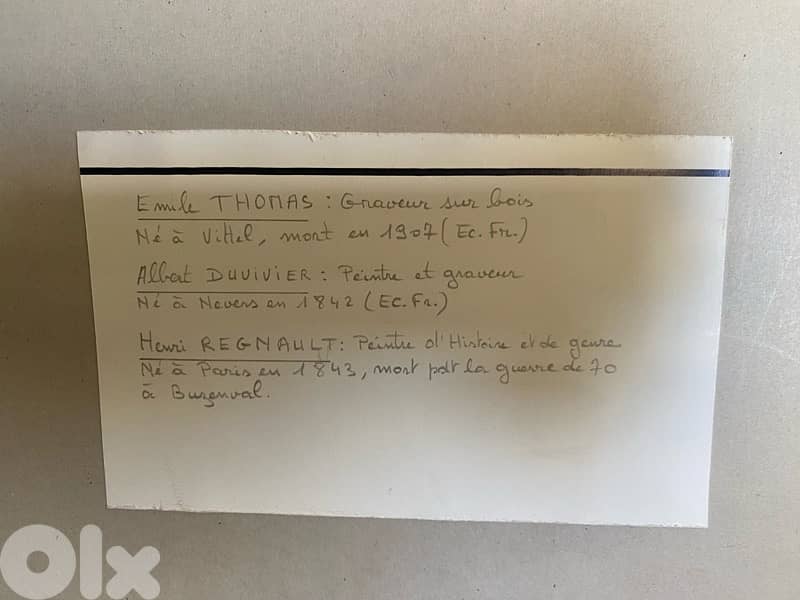 Emile THOMAS : Graveur sur bois
Né à Vittel, mort en 1907 (Ec. Fr.)
Albert DUVIVIER : Peintre et graveur
Né à Nevers en 1842 (EC. Fr.)
Henri REGNAULT : Peintre d'Histoire et de genre
Né à Paris en 1843, mort pdt la guerre de 70
à Buzenval.
Olx